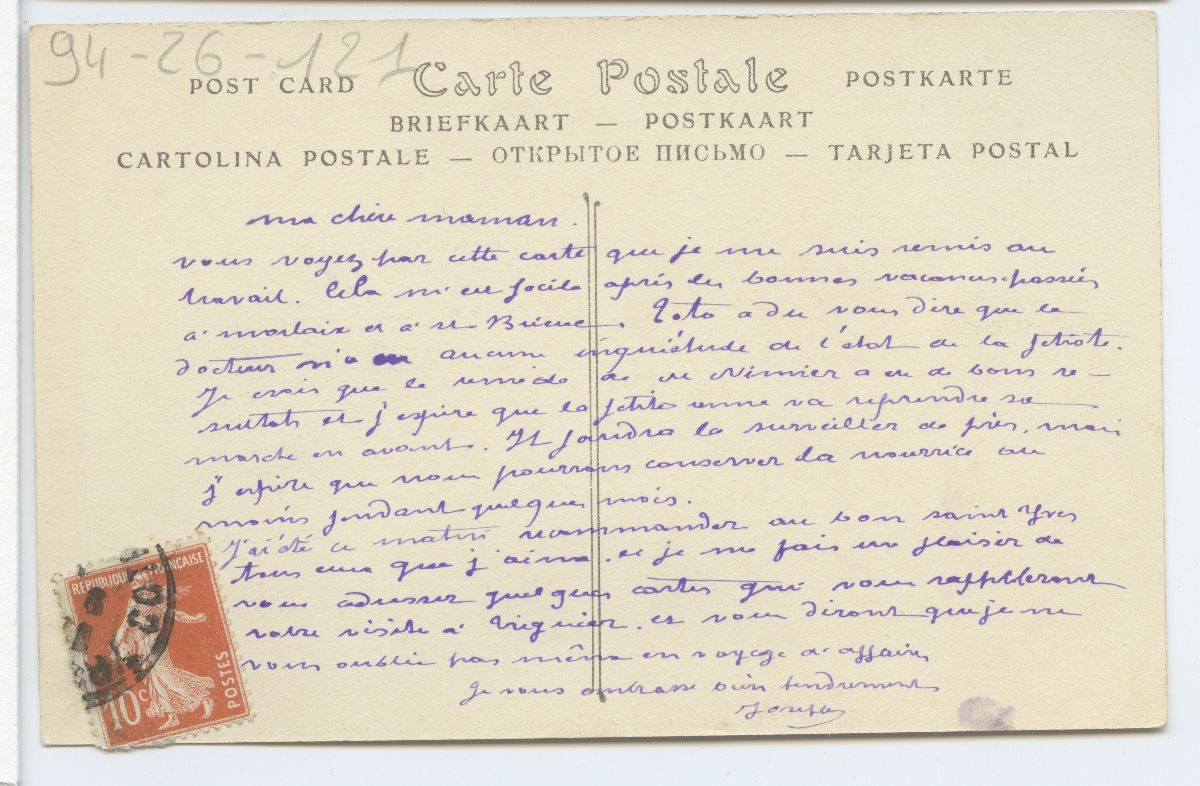 94-26-121
POST CARD Carte Postale POSTKARTE
BRIEFKAART — POSTKAART
CARTOLINA POSTALE — ОТКРЫТОЕ ПИСЬМО — TARJETA POSTAL
ma chère maman.
vous voyez par cette carte que je me suis remis au
travail. Cela m'est facile après les bonnes vacances passées
à morlaix et à st Brieuc. Toto a du vous dire que le
docteur n'a aucune inquiétude de l'état de la petiote.
Je crois que le remède de a eu de bons re-
sultats et j'espère que la petite va reprendre sa
marche en avant. Il faudra la surveiller de près, mais
j'espère que nous pourrons conserver la nourrice au
moins pendant quelques mois.
J'ai été ce matin recommander au bon saint Yves
tous ceux que j'aime. et je me fais un plaisir de
vous adresser quelques cartes qui vous rappelleront
votre visite à Tréguier. et vous diront que je ne
vous oublie pas même en voyage d'affaires
Je vous embrasse bien tendrement
Joseph
REPUBLIQUE FRANÇAISE
POSTES
10c